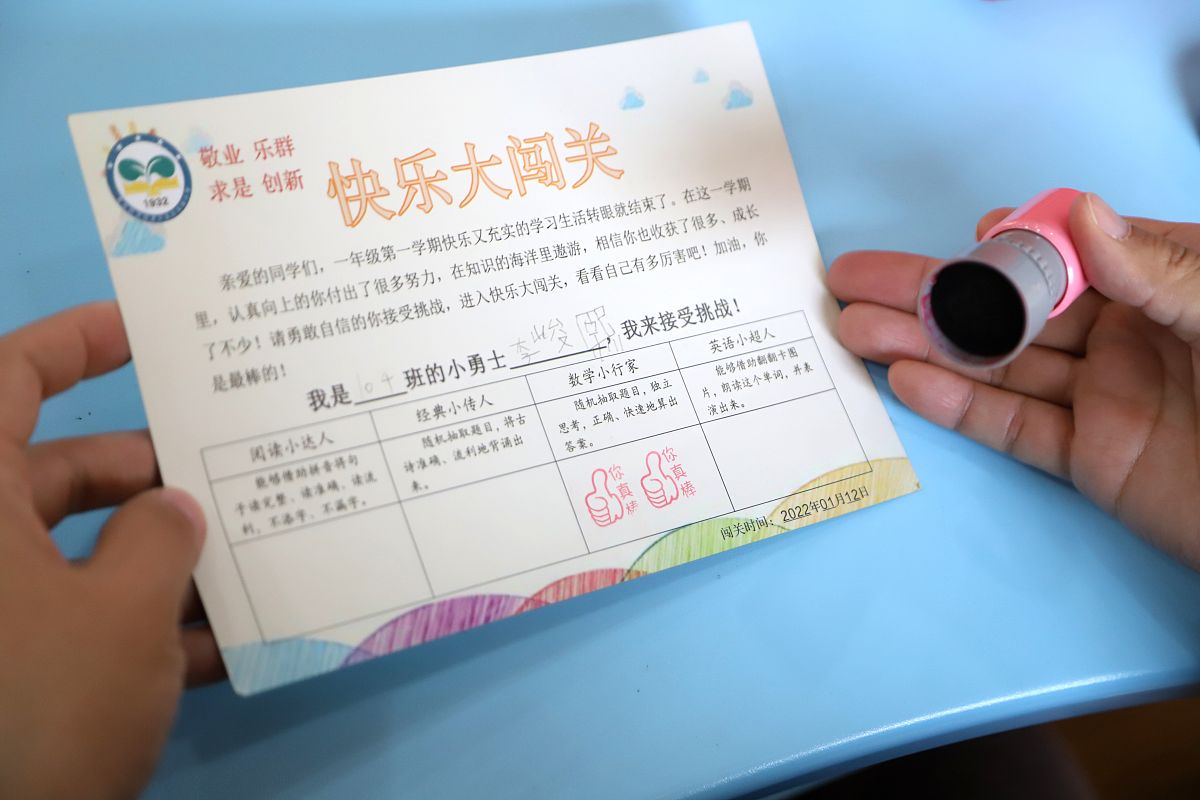 敬业 乐群
求是 创新
1932
快乐大闯关
亲爱的同学们，一年级第一学期快乐又充实的学习生活转眼就结束了。在这一学期
里，认真向上的你付出了很多努力，在知识的海洋里遨游，相信你也收获了很多、成长
了不少！请勇敢自信的你接受挑战，进入快乐大闯关，看看自己有多厉害吧！加油，你
是最棒的！
我是104班的小勇士李峻熙，我来接受挑战！
阅读小达人
能够借助拼音将句
子读完整、读准确、读流
利，不添字、不漏字。
经典小传人
随机抽取题目，将古
诗准确、流利地背诵出
来。
数学小行家
随机抽取题目，独立
思考，正确、快速地算出
答案。
英语小超人
能够借助翻翻卡图
片，朗读这个单词，并表
演出来。
你真棒
你真棒
闯关时间：2022年01月12日